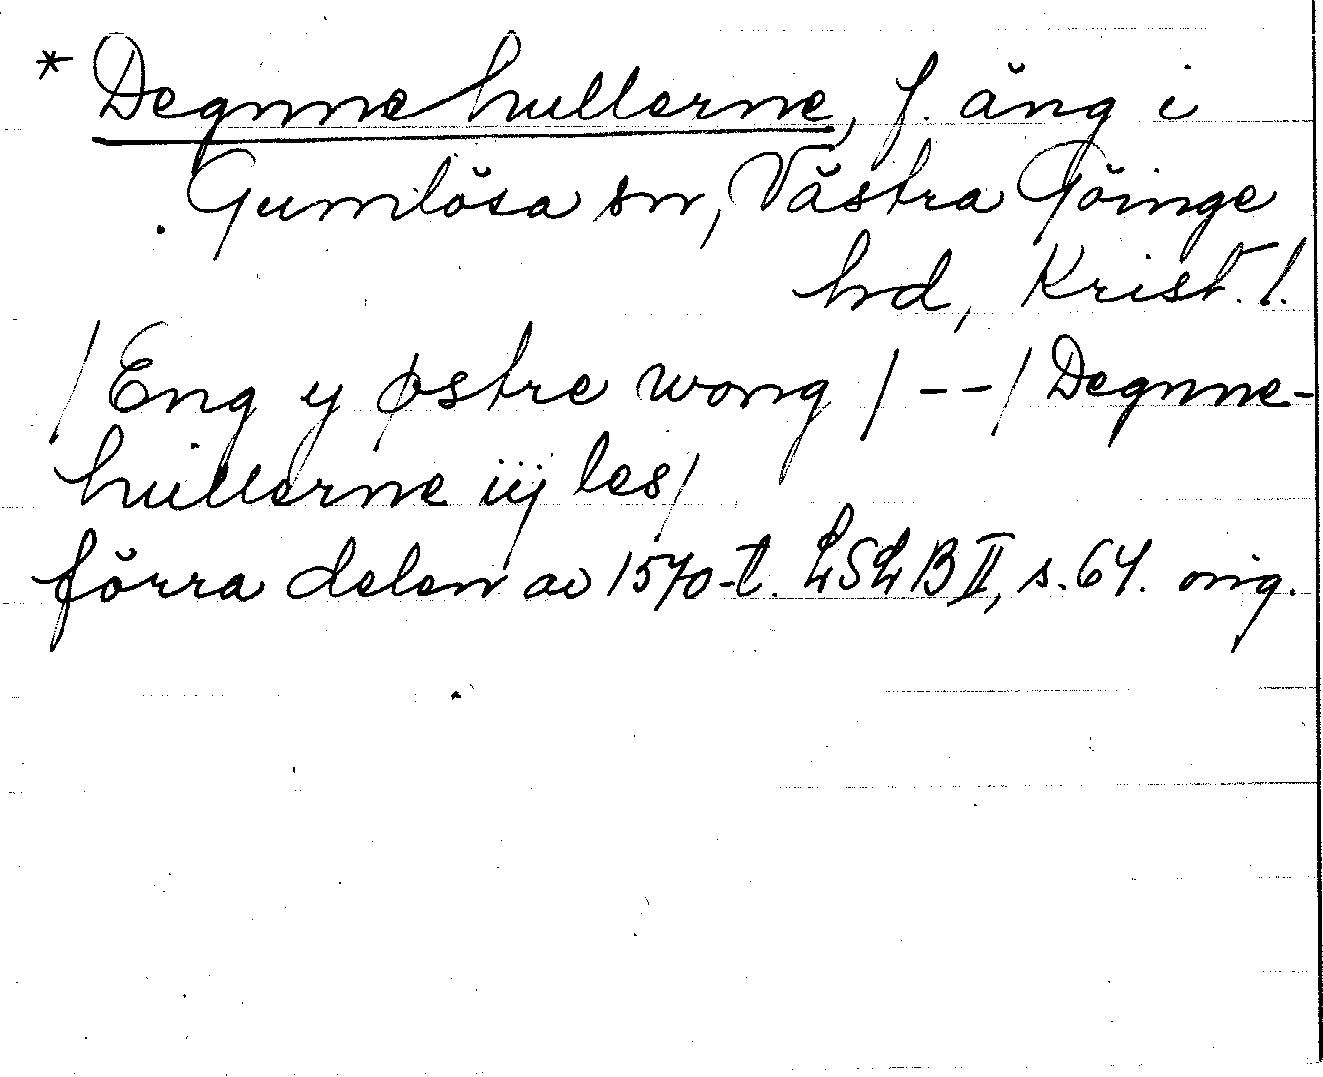 * Degnnehullerne, f. äng i
Gumlösa sn, Västra Göinge
hd, Krist. l.
/Eng y østre wong /--/ Degnne-
hullerne iij les/
förra delen av 1570-t. LSLB II, s. 64. orig.